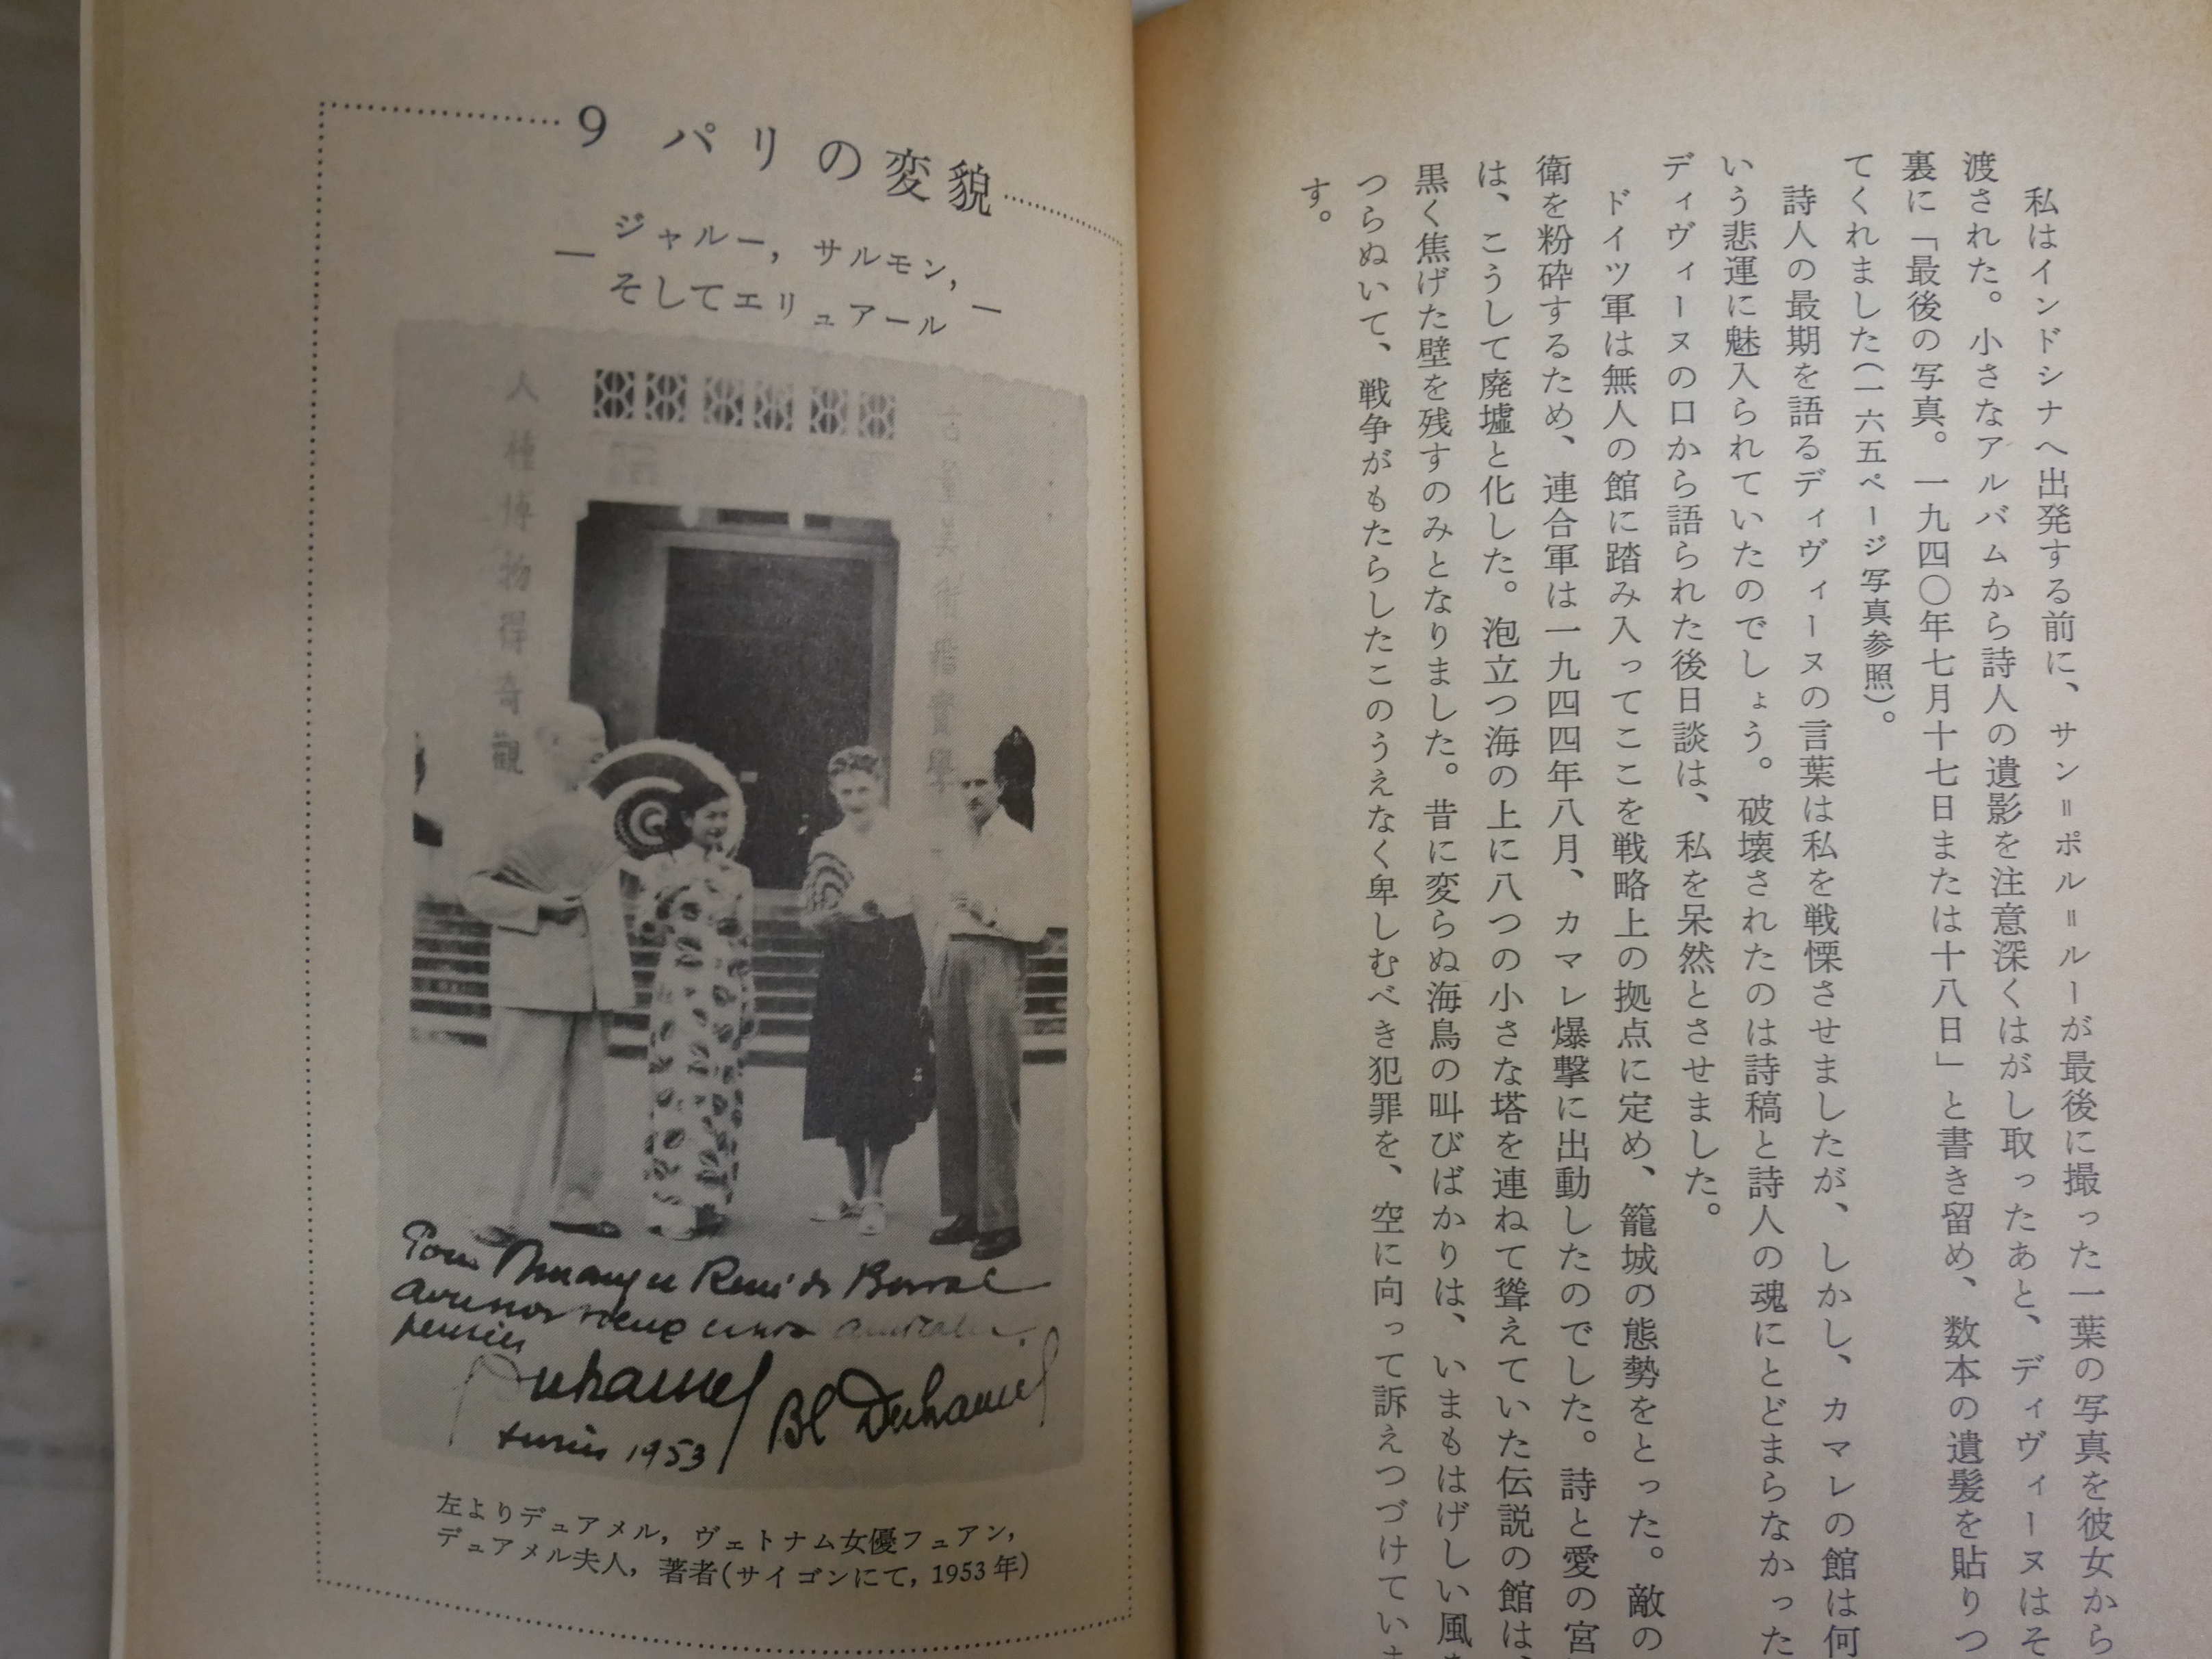 私はインドシナへ出発する前に、サン＝ポル＝ルーが最後に撮った一葉の写真を彼女から
渡された。小さなアルバムから詩人の遺影を注意深くはがし取ったあと、ディヴィーヌはそ
裏に「最後の写真。一九四〇年七月十七日または十八日」と書き留め、数本の遺髪を貼りつ
てくれました（一六五ページ写真参照）。
詩人の最期を語るディヴィーヌの言葉は私を戦慄させましたが、しかし、カマレの館は何
いう悲運に魅入られていたのでしょう。破壊されたのは詩稿と詩人の魂にとどまらなかった
ディヴィーヌの口から語られた後日談は、私を呆然とさせました。
ドイツ軍は無人の館に踏み入ってここを戦略上の拠点に定め、籠城の態勢をとった。敵の
衛を粉砕するため、連合軍は一九四四年八月、カマレ爆撃に出動したのでした。詩と愛の宮
は、こうして廃墟と化した。泡立つ海の上に八つの小さな塔を連ねて聳えていた伝説の館は、
黒く焦げた壁を残すのみとなりました。昔に変らぬ海鳥の叫びばかりは、いまもはげしい風
つらぬいて、戦争がもたらしたこのうえなく卑しむべき犯罪を、空に向って訴えつづけてい
す。
9 パリの変貌
— ジャルー，サルモン，
そしてエリュアール —
人種博物得奇觀
Duhamel
Bl Duhamel
1953
左よりデュアメル，ヴェトナム女優フュアン，
デュアメル夫人，著者（サイゴンにて，1953年）